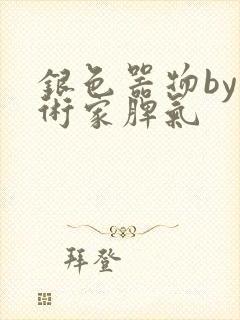 銀色器物by
術家脾氣
拜登